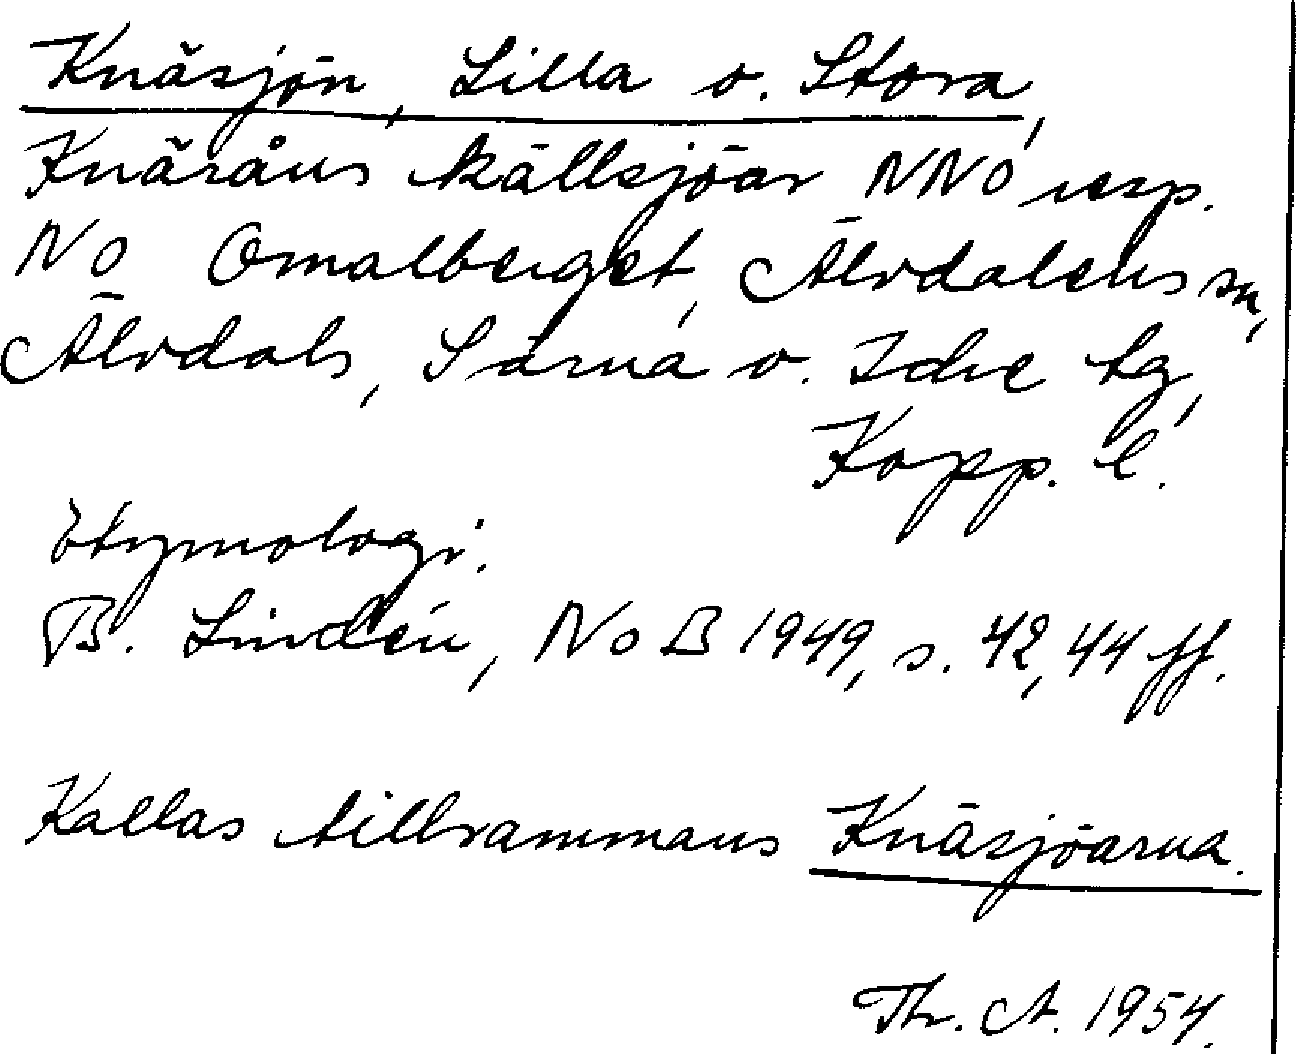 Knäsjön, Lilla o. Stora,
Knäråns källsjöar NNO resp.
NO Omalberget, Älvdalens sn,
Älvdals, Särna o. Idre tg,
Kopp. l.
Etymologi.
B. Lindén, NoB 1949, s. 42, 44 ff.
Kallas tillsammans Knäsjöarna.
Th. A. 1954.